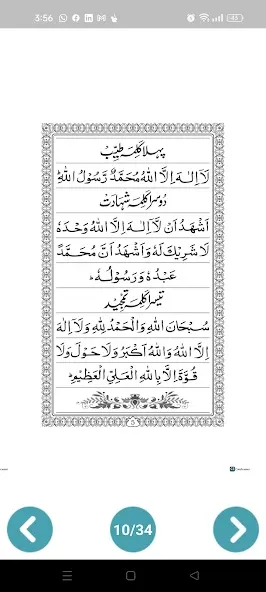 3:56
43
پہلا کلمہ طیّب
لَآ اِلٰهَ اِلَّا اللّٰهُ مُحَمَّدٌ رَّسُوْلُ اللّٰهِ
دُوسرا کلمہ شہادت
اَشْهَدُ اَنْ لَّآ اِلٰهَ اِلَّا اللّٰهُ وَحْدَهٗ
لَا شَرِيْكَ لَهٗ وَاَشْهَدُ اَنَّ مُحَمَّدًا
عَبْدُهٗ وَرَسُوْلُهٗ
تیسرا کلمہ تمجید
سُبْحَانَ اللّٰهِ وَالْحَمْدُ لِلّٰهِ وَلَآ اِلٰهَ
اِلَّا اللّٰهُ وَاللّٰهُ اَكْبَرُ وَلَا حَوْلَ وَلَا
قُوَّةَ اِلَّا بِاللّٰهِ الْعَلِيِّ الْعَظِيْمِ
5
10/34